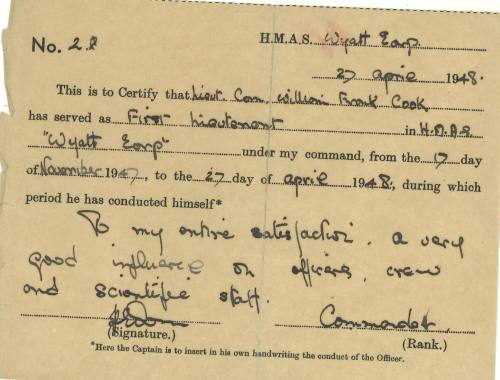 No. 28
H.M.A.S. Wyatt Earp
27 april 1948.
This is to Certify that Lieut. Com. William Frank Cook
has served as First Lieutenant in H.M.A.S
"Wyatt Earp" under my command, from the 17 day
of November 1947, to the 27 day of april 1948, during which
period he has conducted himself*
To my entire satisfaction. a very
good influence on officers, crew
and scientific staff.
Commander.
(Signature.) (Rank.)
*Here the Captain is to insert in his own handwriting the conduct of the Officer.